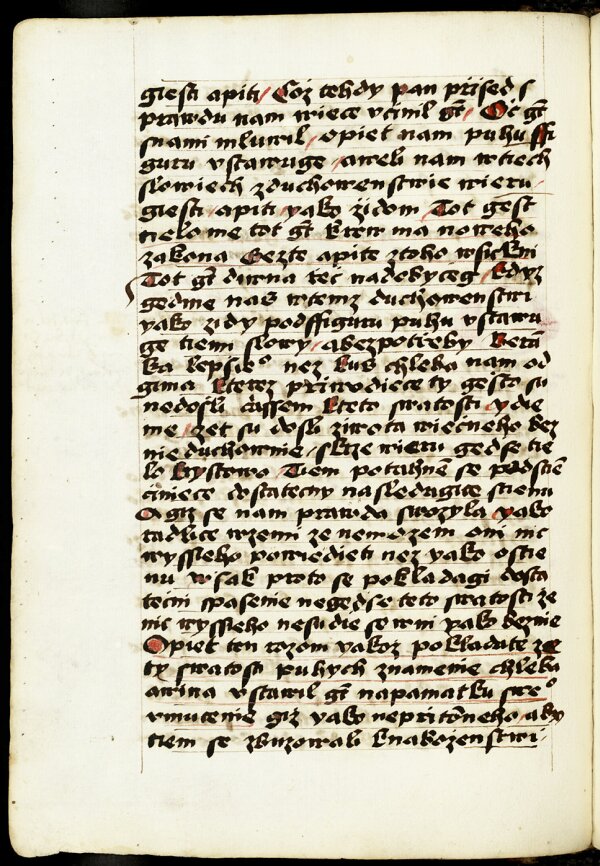 giesti apiti / Coz tehdy pan přised s
prawdu nam wiece včinil gt / Oc gt
snami mluwil / opiet nam puhu ffi
guru vstawuge / aneb nam wtiech
slowiech zduchowenstwie wieru
giesti apiti yako židom / Tot gest
tielo me tot gt krew ma noweho
zakona Gezte apite ztoho wsickni
Tot gt diwna rec nadobyceg / kdyz
gedine nas wtemz duchowenstwi
yako zidy podffiguru puhu vstawu
ge tiemi slowy / abezpotřeby
ka lepsie nez kus chleba nam od
gima kterez priwodiece ty gesto su
nedosli cussem kteto swatosti ydie
me / zet su dosli ziwota wiecneho bez
nie duchownie / skrze wieru gedse tie
lo krystowo Tiem potahnem se
ciniece dostatecny nasledugice
Ogiz se nam prawda yako
radsice wzemi ze nemozem oni nic
wyssieho powiedieti nez yako ostie
nu wsak proto se pokladagi dosta
tecni spasenie negedse teto swatosti ze
nic wyssieho nesudie sewni yako beznie
Opiet ten rozom yakoz pokladate ze
ty swatosti puhych znamenie chleba
awina vstawil gt napamatku swe
vmucenie giz yako nepritomneho aby
tiem se zbuzowali knabozenstwi